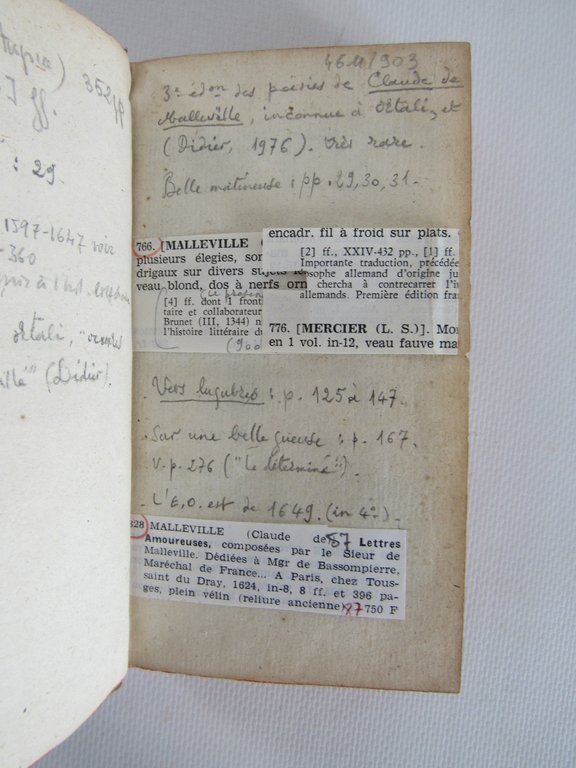 352 pp
] ff.
: 29.
1597-1647 voir
- 360
Ortali, "
" (Didier).
4611/903
3e édon des poésies de Claude de
Malleville, inconnue à Ortali, et
(Didier, 1976). très rare.
Belle matineuse : pp. 29, 30, 31.
766. [MALLEVILLE
plusieurs élegies, son
drigaux sur divers sujets
veau blond, dos à nerfs orn
[4] ff. dont 1 front
taire et collaborateur
Brunet (III, 1344)
l'histoire littéraire du
(900
encadr. fil à froid sur plats.
[2] ff., XXIV-432 pp., [1] ff.
Importante traduction, précédée
osophe allemand d'origine ju
chercha à contrecarrer l'i
allemands. Première édition fran
776. [MERCIER (L. S.)]. Mo
en 1 vol. in-12, veau fauve ma
. Vers lugubres : p. 125 à 147.
. Sur une belle gueuse : p. 167.
V. p. 276 ("Le déterminé").
. L'E.O. est de 1649. (in 4°) -
328 MALLEVILLE (Claude de 87 Lettres
Amoureuses, composées par le Sieur de
Malleville. Dédiées à Mgr de Bassompierre,
Maréchal de France... A Paris, chez Tous-
saint du Dray, 1624, in-8, 8 ff. et 396 pa-
ges, plein vélin (reliure ancienne) 87 750 F